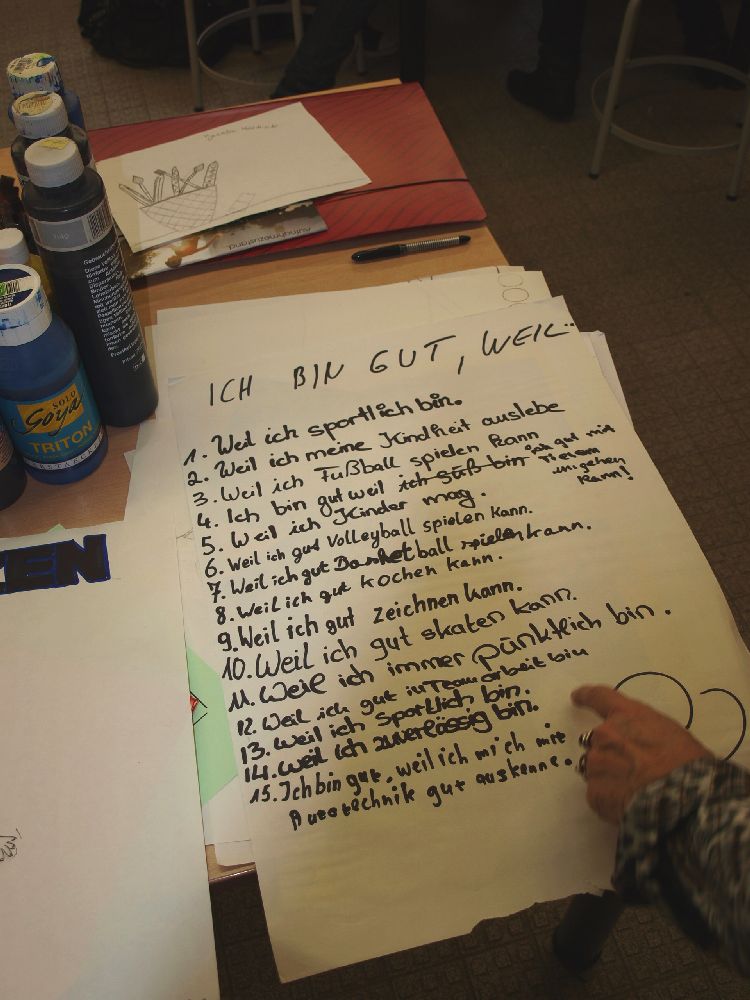 ICH BIN GUT, WEIL...
1. Weil ich sportlich bin.
2. Weil ich meine Kindheit auslebe
3. Weil ich Fußball spielen kann
4. Ich bin gut weil ich süß bin ich gut mit
Tieren
umgehen
kann!
5. Weil ich Kinder mag.
6. Weil ich gut Volleyball spielen kann.
7. Weil ich gut Basketball spielen kann.
8. Weil ich gut kochen kann.
9. Weil ich gut zeichnen kann.
10. Weil ich gut skaten kann.
11. Weil ich immer pünktlich bin.
12. Weil ich gut in Teamarbeit bin
13. Weil ich sportlich bin.
14. Weil ich zuverlässig bin.
15. Ich bin gut, weil ich mich mit
Autotechnik gut auskenne.
SOLO
Goya
TRITON
EN